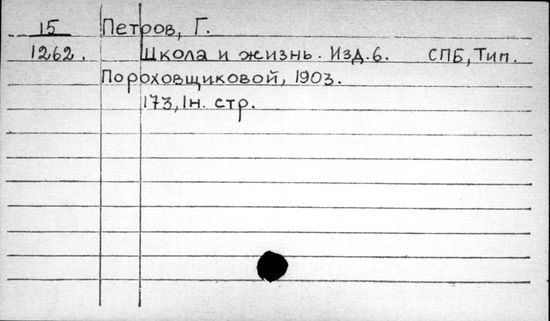 15 Петров, Г.
1262. Школа и жизнь. Изд. 6. СПБ, Тип.
Пороховщиковой, 1903.
173, 1н. стр.